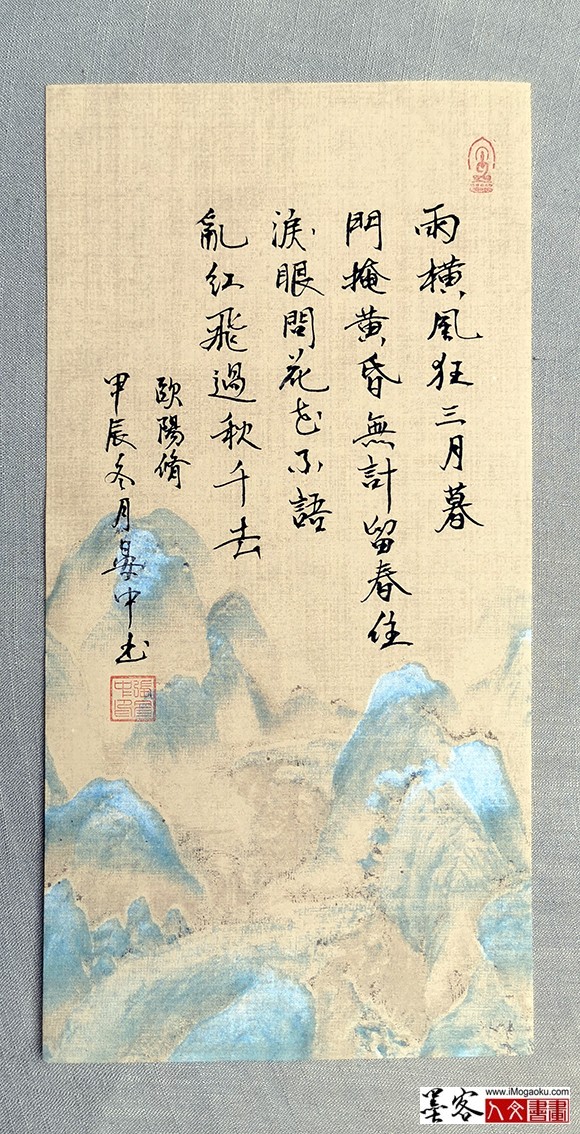 雨橫風狂三月暮
門掩黃昏無計留春住
淚眼問花花不語
亂紅飛過秋千去
歐陽脩
甲辰冬月晏中书
墨客
www.iMogaoku.com
人文書畫